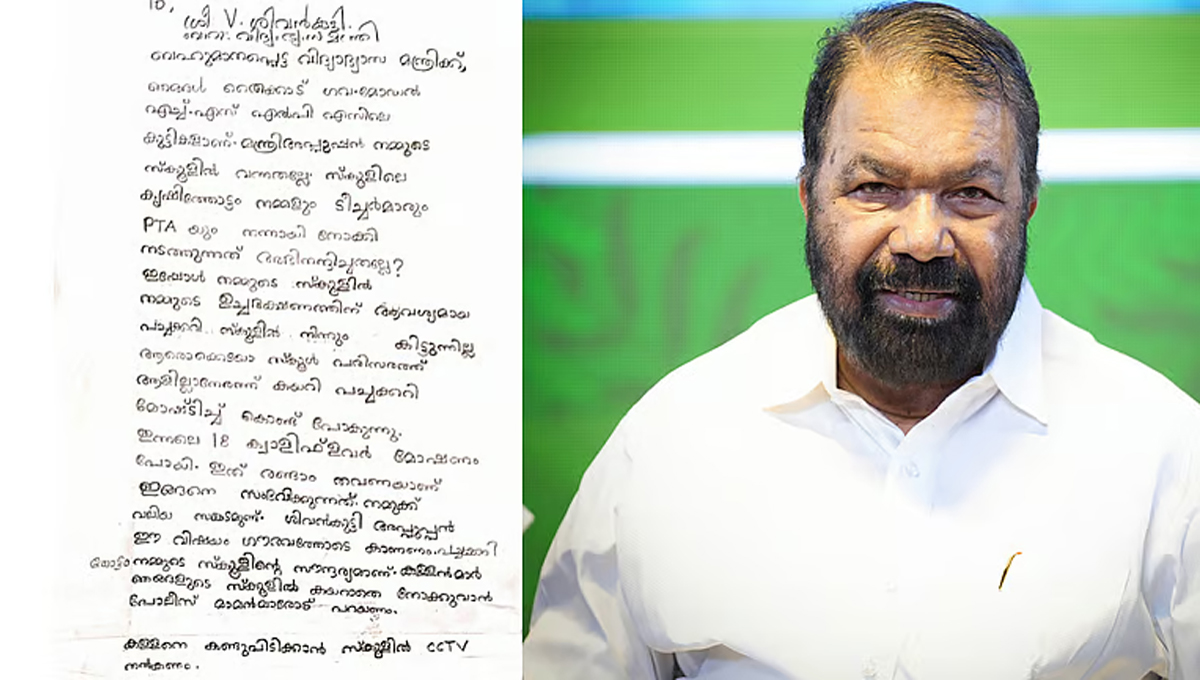 To,
ശ്രീ V. ശിവൻകുട്ടി.
ബഹു. വിദ്യ. മന്ത്രി
ബഹുമാനപ്പെട്ട വിദ്യാഭ്യാസ മന്ത്രിക്ക്,
ഞങ്ങൾ തൈക്കാട് ഗവ.മോഡൽ
എച്ച്.എസ് എൽപി എസിലെ
കുട്ടികളാണ്. മന്ത്രിഅപ്പൂപ്പൻ നമ്മുടെ
സ്കൂളിൽ വന്നതല്ലേ. സ്കൂളിലെ
കൃഷിത്തോട്ടം നമ്മളും ടീച്ചർമാരും
PTA യും നന്നായി നോക്കി
നടത്തുന്നത് അഭിനന്ദിച്ചതല്ലേ?
ഇപ്പോൾ നമ്മുടെ സ്കൂളിൽ
നമ്മുടെ ഉച്ചഭക്ഷണത്തിന് ആവശ്യമായ
പച്ചക്കറി സ്കൂളിൽ നിന്നും കിട്ടുന്നില്ല
ആരൊക്കെയോ സ്കൂൾ പരിസരത്ത്
ആളില്ലാനേരത്ത് കയറി പച്ചക്കറി
മോഷ്ടിച്ച് കൊണ്ട് പോകുന്നു.
ഇന്നലെ 18 ക്വാളിഫ്ളവർ മോഷണം
പോയി. ഇത് രണ്ടാം തവണയാണ്
ഇങ്ങനെ സംഭവിക്കുന്നത്. നമുക്ക്
വലിയ സങ്കടമുണ്ട്. ശിവൻകുട്ടി അപ്പൂപ്പൻ
ഈ വിഷയം ഗൗരവത്തോടെ കാണണം. പച്ചക്കറി
തോട്ടം നമ്മുടെ സ്കൂളിന്റെ സൗന്ദര്യമാണ്. കള്ളൻമാർ
ഞങ്ങളുടെ സ്കൂളിൽ കയറാതെ നോക്കുവാൻ
പോലീസ് മാമൻമാരോട് പറയണം.
കള്ളനെ കണ്ടുപിടിക്കാൻ സ്കൂളിൽ CCTV
നൽകണം.